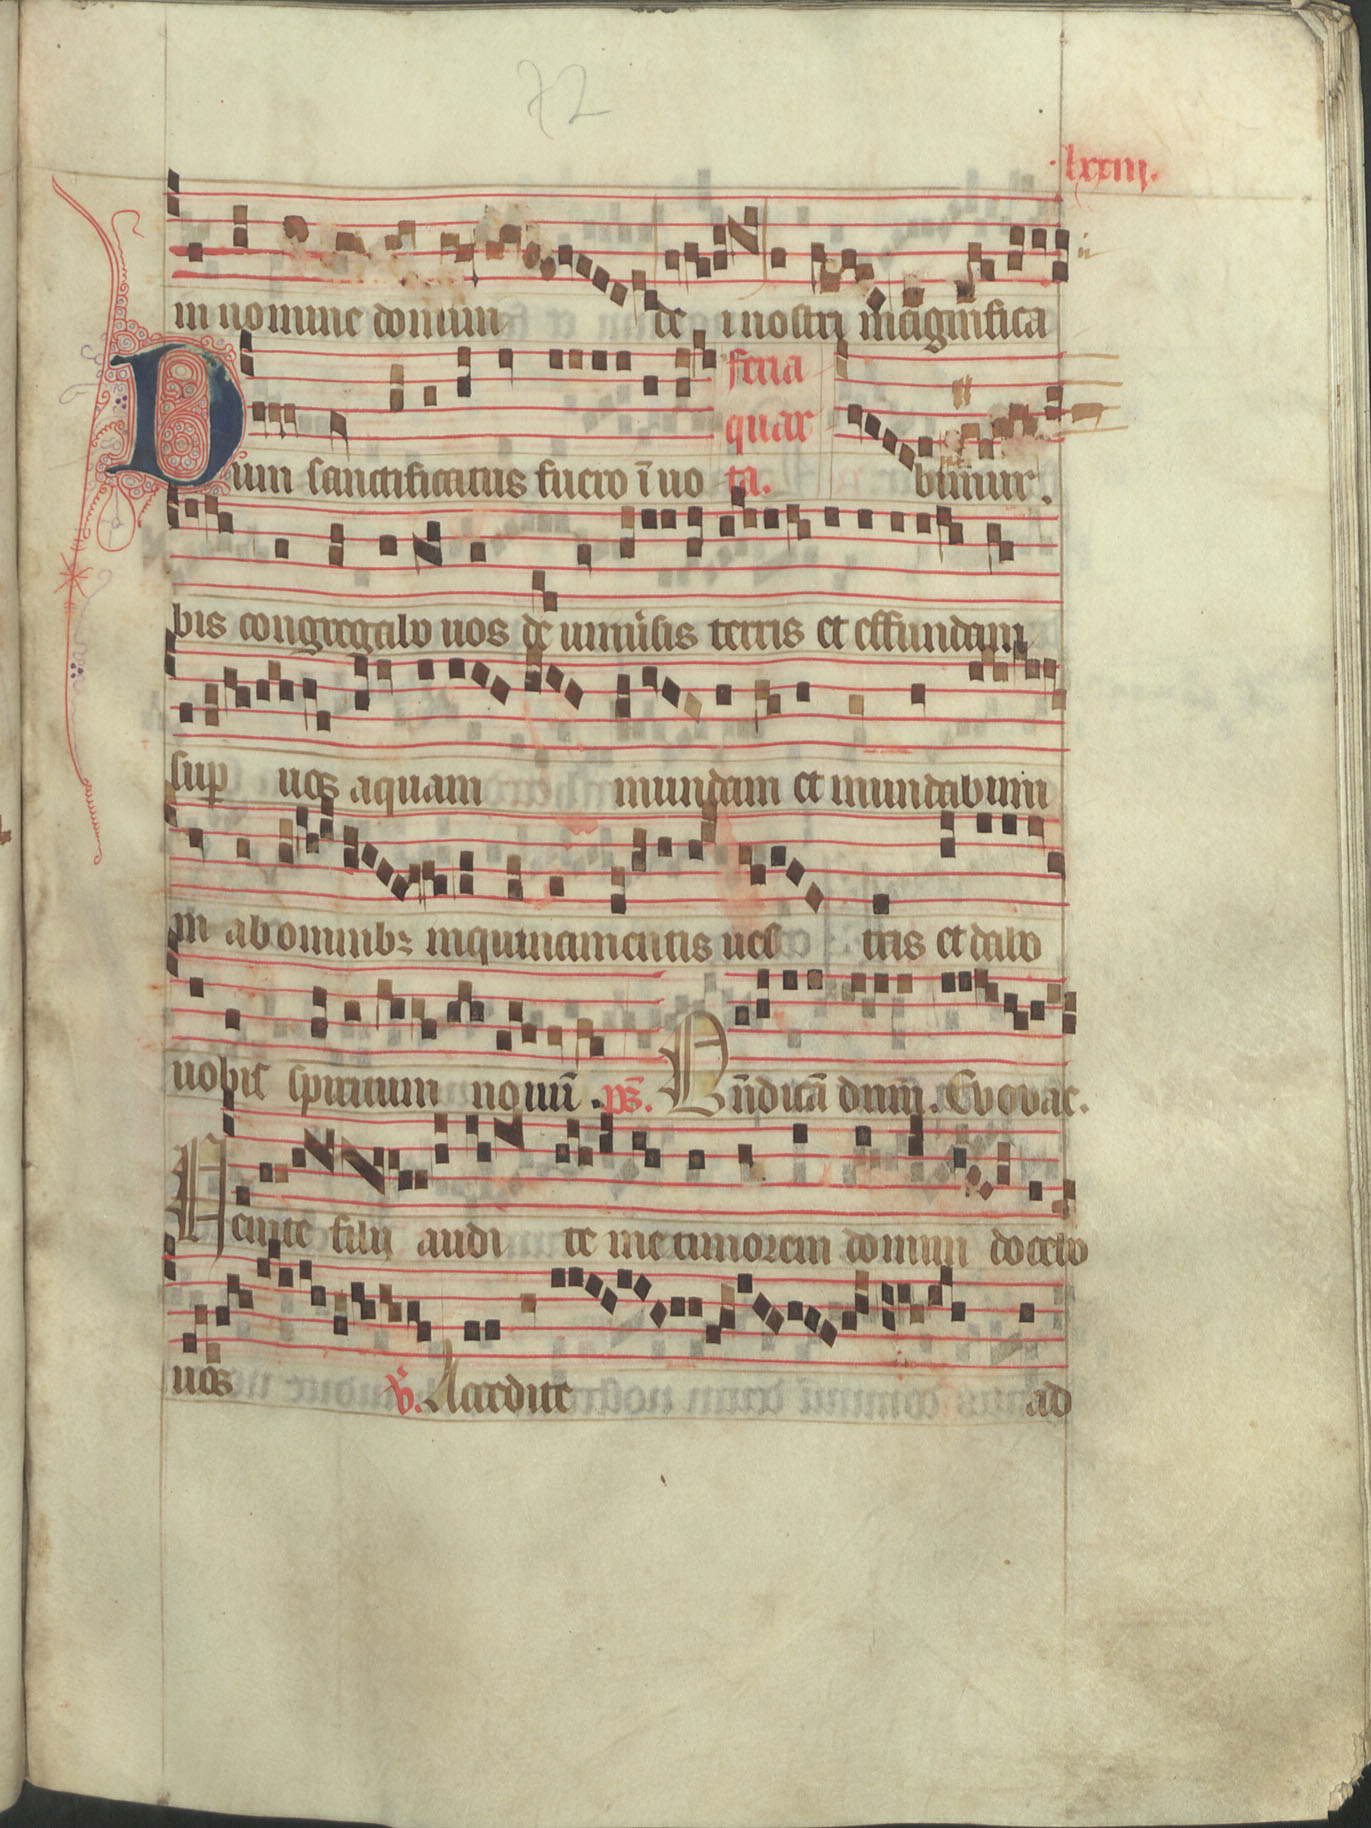 72
.lxxiij.
in nomine domini de i nostri magnifica
feria
quar
Dum sanctificatus fuero ī uo ta. bimur.
bis congregabo uos de uniu'sis terris et effundam
sup uos aquam mundam et mundabimi
ni ab omnibꝫ inquinamentis ues tris et dabo
uobis spiritum nouū. ps. Bn̄dicā dnm̄. Evovae.
Uenite filij audi te me timorem domini docebo
uos v̄. Accedite ad